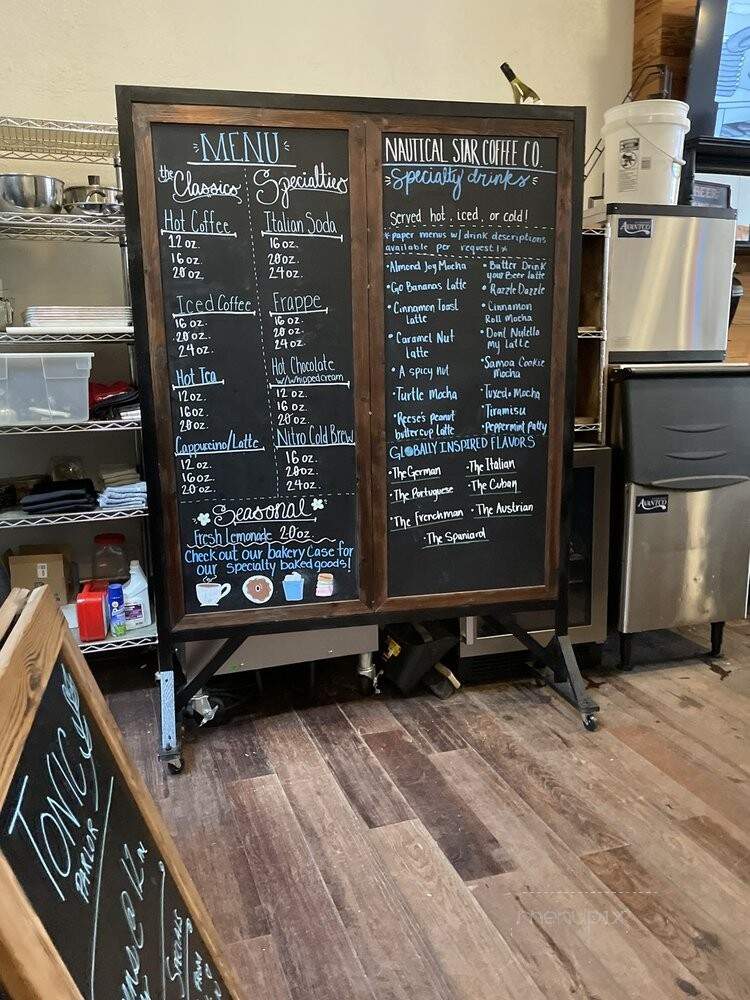 MENU
the Classics
Hot Coffee
12 oz.
16 oz.
20 oz.
Iced Coffee
16 oz.
20 oz.
24 oz.
Hot Tea
12 oz.
16 oz.
20 oz.
Cappucino/Latte
12 oz.
16 oz.
20 oz.
Specialties
Italian Soda
16 oz.
20 oz.
24 oz.
Frappe
16 oz.
20 oz.
24 oz.
Hot Chocolate
w/whipped cream
12 oz.
16 oz.
20 oz.
Nitro Cold Brew
16 oz.
20 oz.
24 oz.
Seasonal
Fresh Lemonade 20 oz.
Check out our bakery case for
our specialty baked goods!
NAUTICAL STAR COFFEE CO.
Specialty drinks
Served hot, iced, or cold!
*paper menus w/ drink descriptions
available per request!*
• Almond Joy Mocha
• Go Bananas Latte
• Cinnamon Toast
Latte
• Caramel Nut
Latte
• A spicy nut
• Turtle Mocha
• Reese's peanut
buttercup latte
• Butter Drink
your Beer latte
• Razzle Dazzle
• Cinnamon
Roll Mocha
• Don't Nutella
My Latte
• Samoa Cookie
Mocha
• Tuxedo Mocha
• Tiramisu
• Peppermint patty
GLOBALLY INSPIRED FLAVORS
• The German
• The Italian
• The Portuguese
• The Cuban
• The Frenchman
• The Austrian
• The Spaniard
AVANTCO
AVANTCO
TONIC
PARLOR
SPECIALS
FROM
menupix